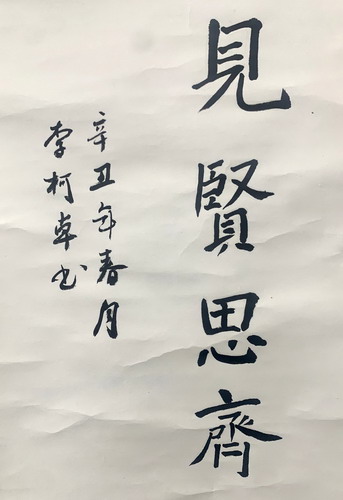 見賢思齊
辛丑年春月
李柯卓书